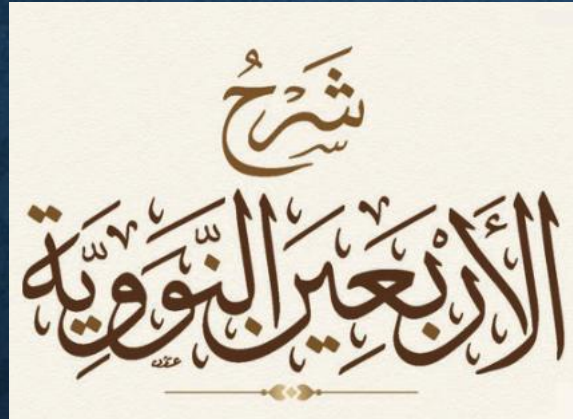 شَرْحُ
الأَرْبَعِينَ النَّوَوِيَّة